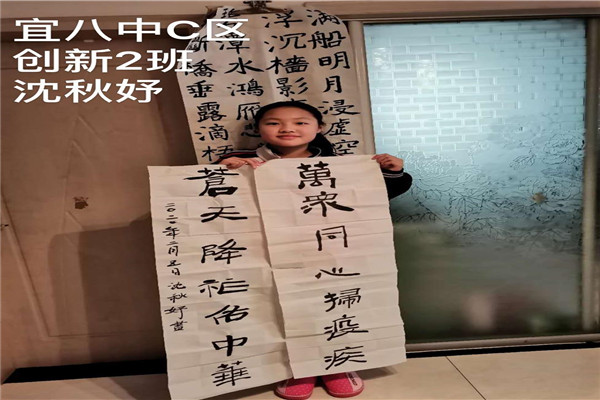 宜八中C区
创新2班
沈秋妤
满船明月浸虚空
浮沉檣影
潭水鴻雁
橋垂露滴梧
萬眾同心掃疫疾
蒼天降祉佑中華
二〇二〇年二月五日沈秋妤書